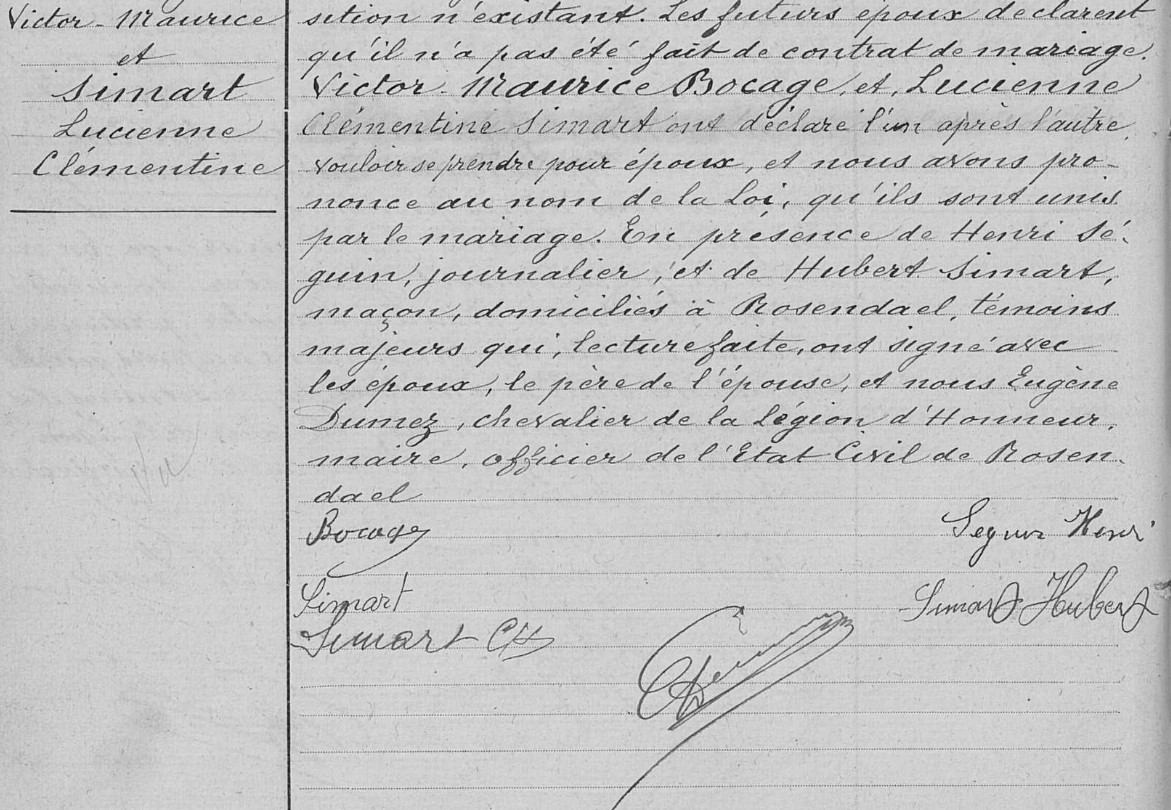 Victor-Maurice
et
Simart
Lucienne
Clémentine
sition n'existant. Les futurs époux déclarent
qu'il n'a pas été fait de contrat de mariage.
Victor-Maurice Bocage, et, Lucienne
Clémentine Simart ont déclaré l'un après l'autre
vouloir se prendre pour époux, et nous avons pro-
noncé au nom de la Loi, qu'ils sont unis
par le mariage. En présence de Henri Sé-
guin, journalier, et de Hubert Simart,
maçon, domiciliés à Rosendael, témoins
majeurs qui, lecture faite, ont signé avec
les époux, le père de l'épouse, et nous Eugène
Dumez, chevalier de la Légion d'Honneur,
maire, officier de l'Etat Civil de Rosen-
dael
Bocage
Seguin Henri
Simart
Simart Hubert
Simart